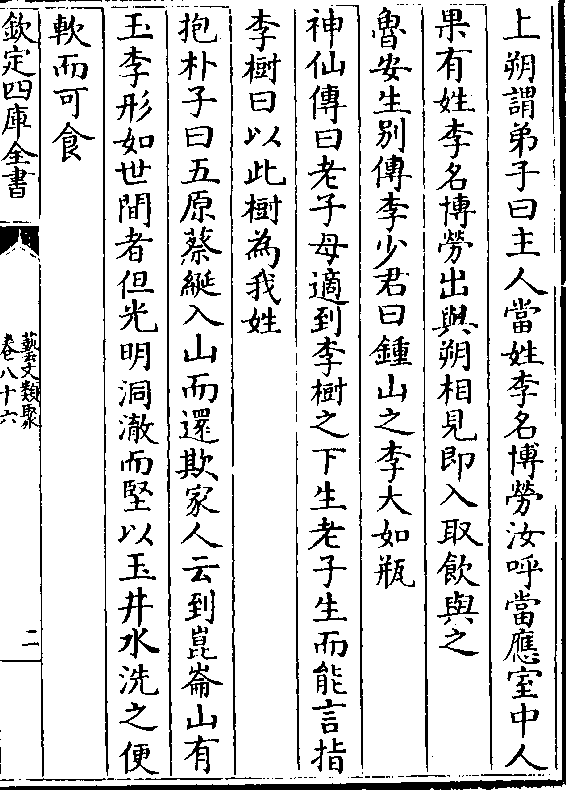 上朔謂弟子曰主人當姓李名博勞汝呼當應室中人
果有姓李名博勞出與朔相見即入取飲與之
魯安生别傳李少君曰鍾山之李大如瓶
神仙傳曰老子母適到李樹之下生老子生而能言指
李樹曰以此樹為我姓
抱朴子曰五原蔡綎入山而還欺家人云到崑崙山有
玉李形如世間者但光明洞澈而堅以玉井水洗之便
軟而可食
欽定四庫全書
藝文類聚
卷八十六
二